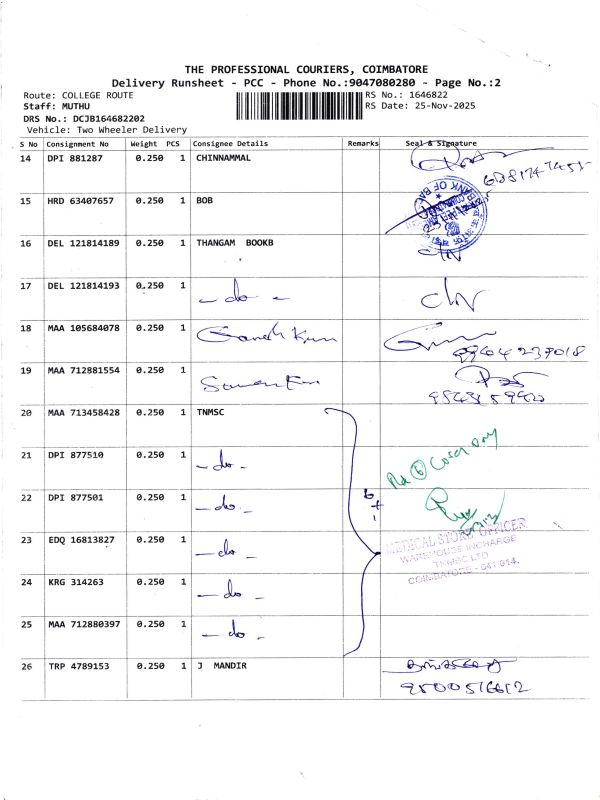 THE PROFESSIONAL COURIERS, COIMBATORE
Delivery Runsheet - PCC - Phone No.:9047080280 - Page No.:2
Route: COLLEGE ROUTE RS No.: 1646822
Staff: MUTHU RS Date: 25-Nov-2025
DRS No.: DCJB164682202
Vehicle: Two Wheeler Delivery
S No Consignment No Weight PCS Consignee Details Remarks Seal & Signature
14 DPI 881287 0.250 1 CHINNAMMAL
15 HRD 63407657 0.250 1 BOB
16 DEL 121814189 0.250 1 THANGAM BOOKB
17 DEL 121814193 0.250 1 - do -
18 MAA 105684078 0.250 1
19 MAA 712881554 0.250 1
20 MAA 713458428 0.250 1 TNMSC
21 DPI 877510 0.250 1 - do -
22 DPI 877501 0.250 1 - do -
23 EDQ 16813827 0.250 1 - do -
MEDICAL STORE OFFICER
WAREHOUSE INCHARGE
TNMSC LTD
COIMBATORE - 641 014.
24 KRG 314263 0.250 1 - do -
25 MAA 712880397 0.250 1 - do -
26 TRP 4789153 0.250 1 J MANDIR
9500516612